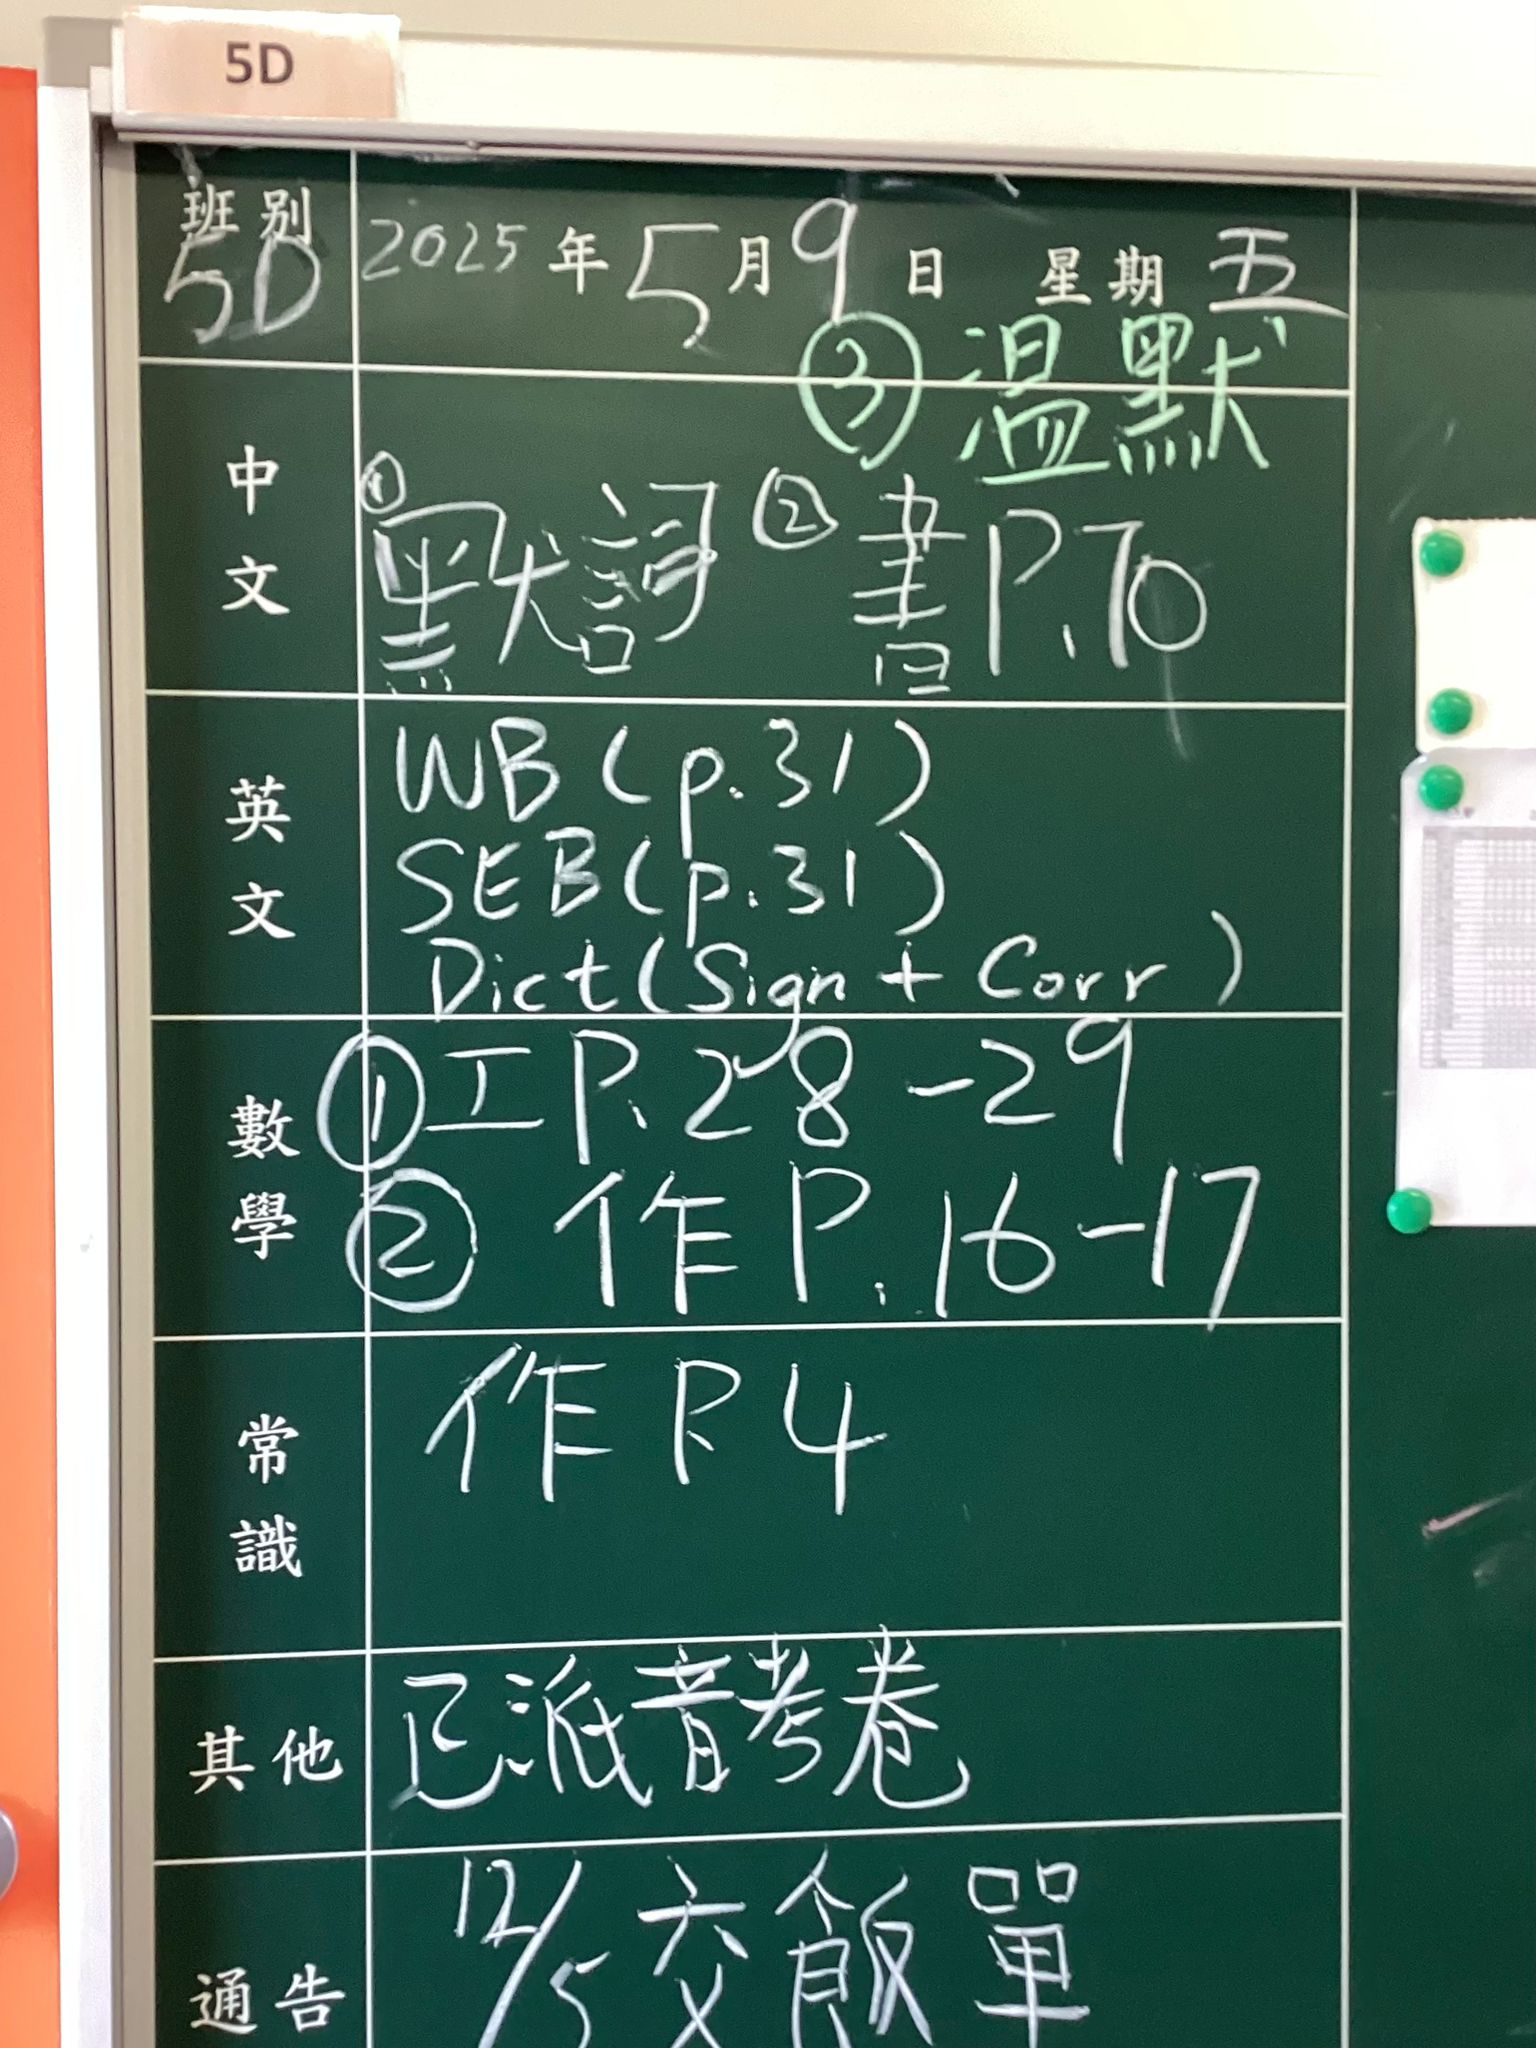 5D
班別 5D 2025年5月9日 星期五
③溫默
中文 ①默詞 ②書P.70
英文 WB (p.31)
SEB (p.31)
Dict (Sign + Corr)
數學 ①工P.28-29
②作P.16-17
常識 作P.4
其他 已派音考卷
通告 12/5交飯單